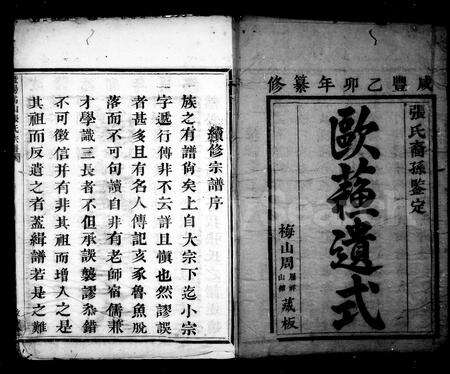 咸豐乙卯年纂修
張氏裔孫鑒定
歐蘓遺式
梅山周
藏板
續修宗譜序
族之有譜尙矣上自大宗下迄小宗
字遞行傳非不云詳且愼也然謬誤
者甚多且有名人傳記亥豕魯魚脫
落而不可句讀自非有老師宿儒兼
才學識三長者不但承誤襲謬叅錯
不可徵信并有非其祖而增入之是
其祖而反遺之者蓋緝譜若是之難